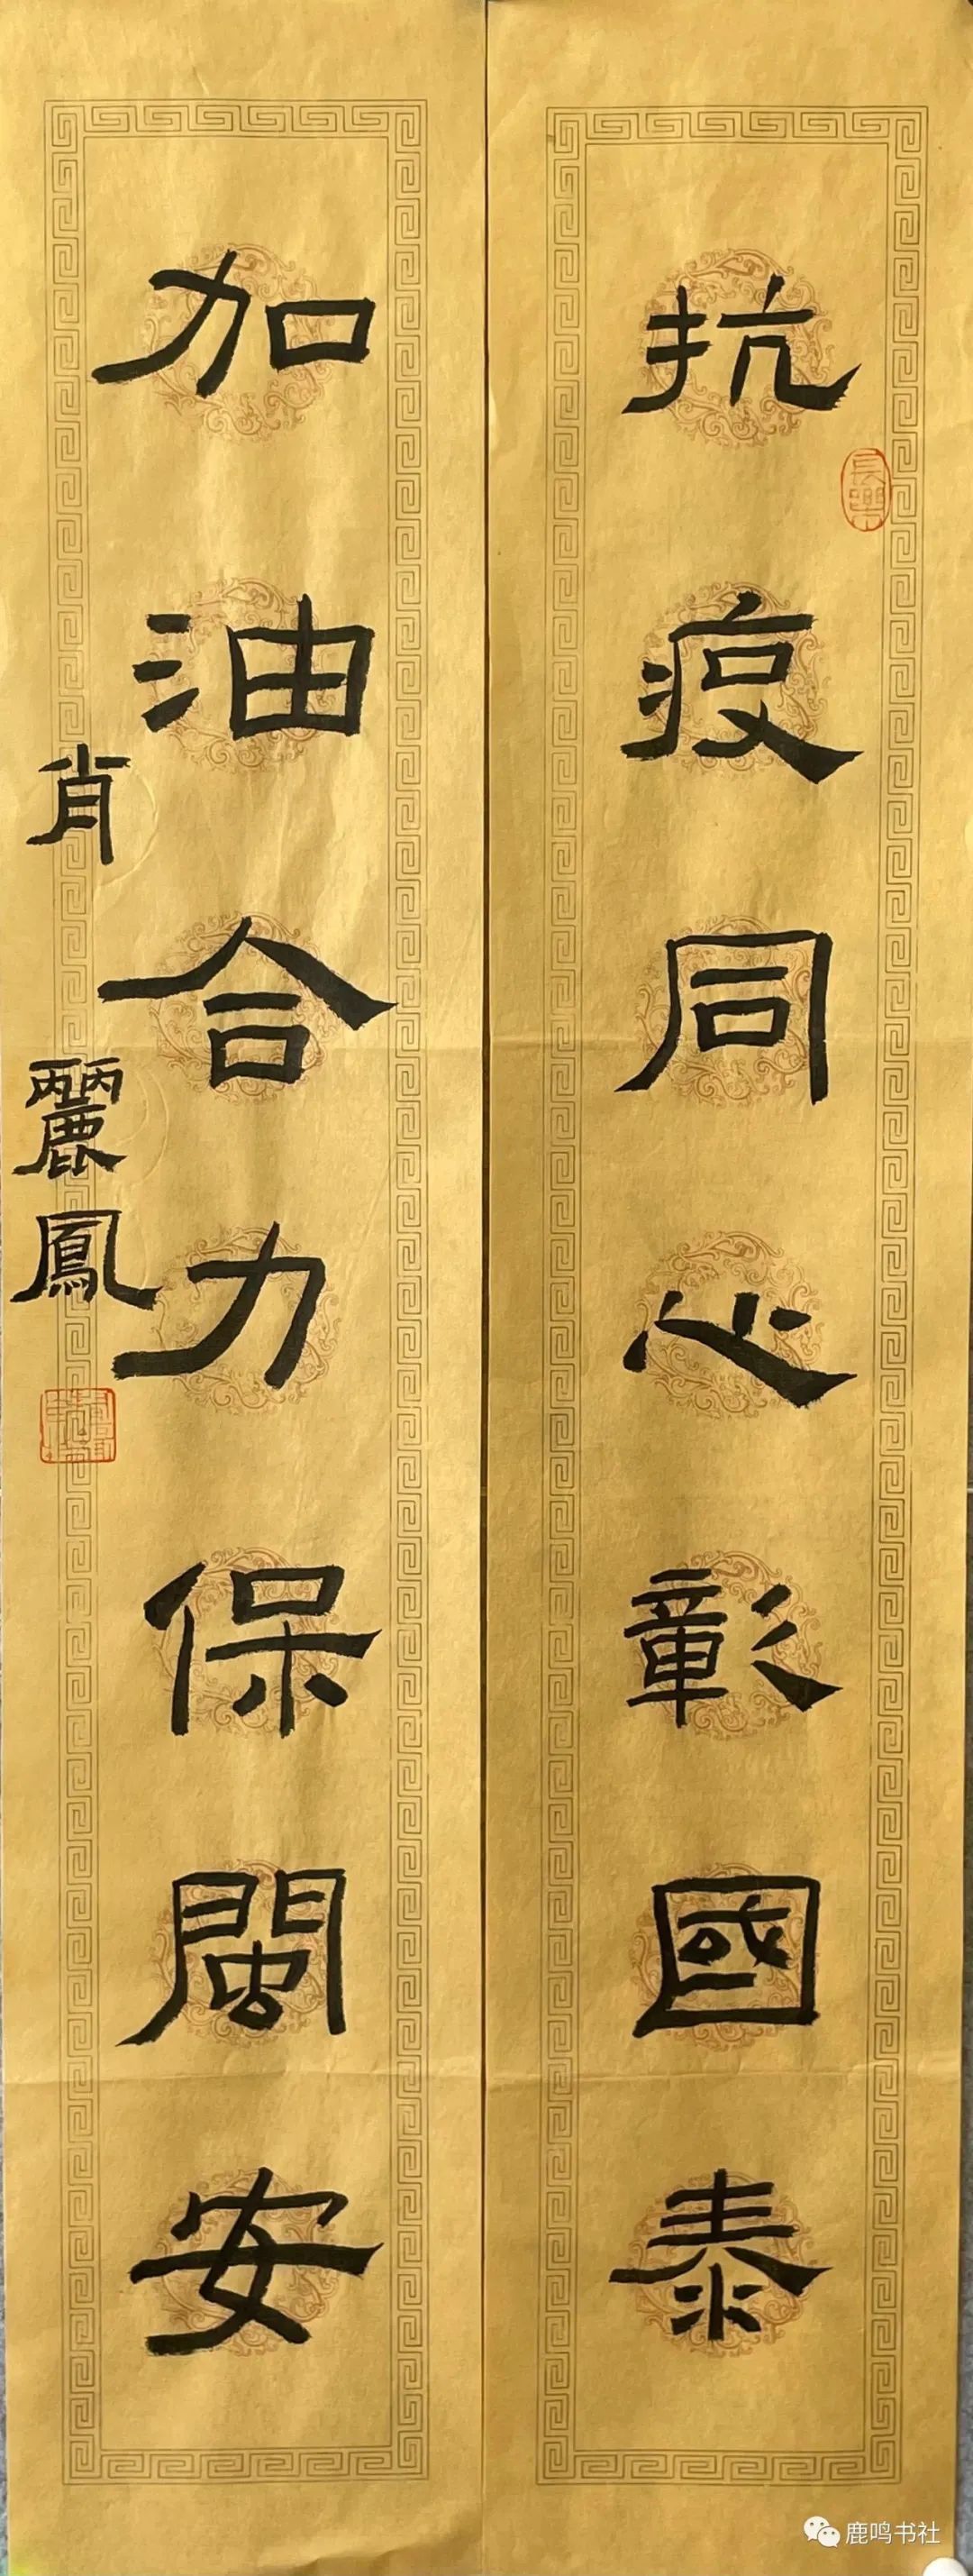 抗疫同心彰國泰
加油合力保閩安
肖麗鳳
長樂
鹿鸣书社